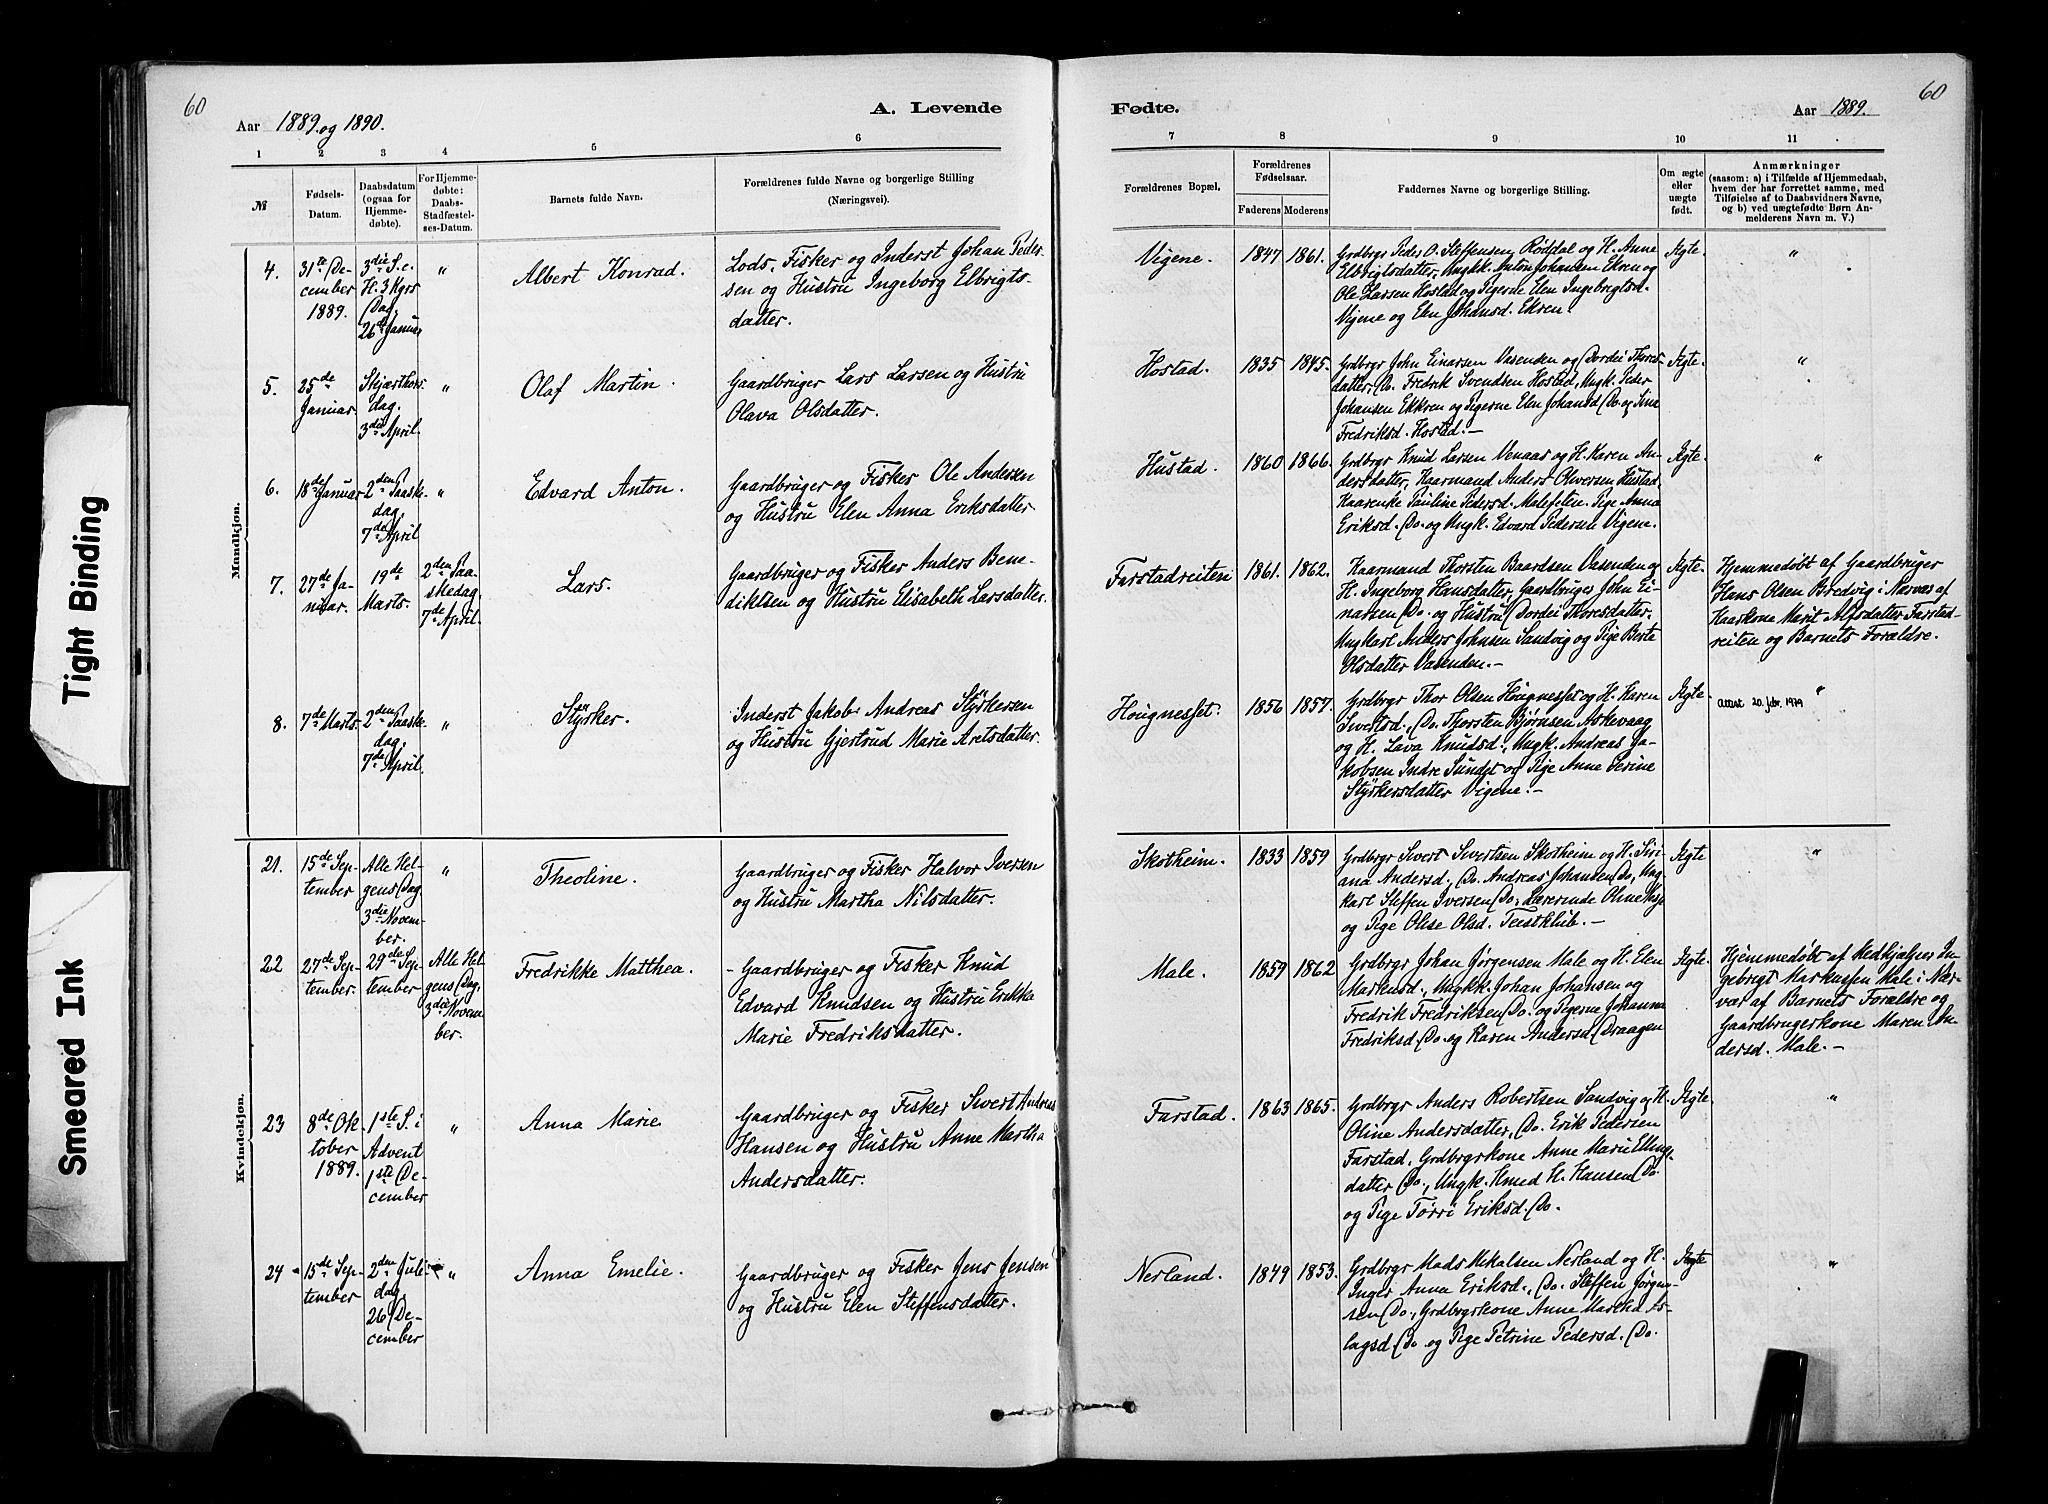 60
Aar 1889. og 1890.
A. Levende
1 2 3 4 5 6
№
Fødsels-
Datum.
Daabsdatum
(ogsaa for
Hjemme-
døbte).
For Hjemme-
døbte:
Daabs-
Stadfæstel-
ses-Datum.
Barnets fulde Navn.
Forældrenes fulde Navne og borgerlige Stilling
(Næringsvei).
Mandkjøn.
4.
31te De-
cember
1889.
3die S. e.
H. 3 Kgrs
Dag,
26de Januar
"
Albert Konrad.
Lods, Fisker og Inderst Johan Peder-
sen og Hustru Ingeborg Elbrigts-
datter.
5.
25de
Januar.
Skjærthors-
dag.
3die April.
"
Olaf Martin.
Gaardbruger Lars Larsen og Hustru
Olava Olsdatter.
6.
18de Januar
2den Paaske-
dag,
7de April
"
Edvard Anton.
Gaardbruger og Fisker Ole Andersen
og Hustru Elen Anna Eriksdatter.
7.
27de Ja-
nuar.
19de
Marts.
2den Paa-
skedag,
7de April.
Lars.
Gaardbruger og Fisker Anders Bene-
diktsen og Hustru Elisabeth Larsdatter.
8.
7de Marts.
2den Paaske-
dag,
7de April.
"
Styrker.
Inderst Jakob Andreas Styrkersen
og Hustru Gjertrud Marie Aretsdatter.
Kvindekjøn.
21.
15de Sep-
tember
Alle Hel-
gens Dag
3die Novem-
ber.
"
Theoline.
Gaardbruger og Fisker Halvor Iversen
og Hustru Martha Nilsdatter.
22
27de Sep-
tember.
29de Sep-
tember
Alle Hel-
gens Dag,
3die Novem-
ber.
Fredrikke Matthea.
- Gaardbruger og Fisker Knud
Edvard Knudsen og Hustru Erikka
Marie Fredriksdatter.
23
8de Ok-
tober
1889.
1ste S. i
Advent
1ste De-
cember
"
Anna Marie.
Gaardbruger og Fisker Sivert Andreas
Hansen og Hustru Anne Martha
Andersdatter.
24
15de Sep-
tember
2den Jule-
dag,
26 De-
cember
"
Anna Emelie.
Gaardbruger og Fisker Jens Jensen
og Hustru Elen Steffensdatter.
60
Fødte.
Aar 1889.
7 8 9 10 11
Forældrenes Bopæl.
Forældrenes
Fødselsaar.
Faderens Moderens
Faddernes Navne og borgerlige Stilling.
Om ægte
eller
uægte
født.
Anmærkninger
(saasom: a) i Tilfælde af Hjemmedaab,
hvem der har forrettet samme, med
Tilføielse af to Daabsvidners Navne,
og b) ved uægtefødte Børn An-
melderens Navn m. V.)
Vigene.
1847 1861.
Grdbrgr Peder O. Steffensen, Røddal og H. Anne
Elbrigtsdatter, Ungk. Anton Johansen Ekren og
Ole Larsen Hostad og Pigerne Elen Ingebrigtsd.
Vigene og Elen Johansd. Ekren.
Ægte-
"
Hostad.
1835 1845.
Grdbrgr John Einarsen Vasenden og Dordei Thores-
datter, Do. Fredrik Svendsen Hostad, Ungk. Peder
Johansen Ekkren og Pigerne Elen Johansd. Do. og Sine
Fredriksd. Hostad.-
Ægte-
"
Hustad.
1860 1866.
Grdbrgr Knud Larsen Venaas og H. Karen An-
dersdatter, Kaarmand Anders Olversen Hustad,
Kaarenke Pauline Pedersd. Malefeten, Pige Anna
Eriksd. Do. og Ungk. Edvard Pedersen Vigene.
Ægte-
"
Farstadreiten
1861. 1862.
Kaarmand Thorsten Baardsen Vasenden og
H. Ingeborg Hansdatter, Gaardbruger John Ei-
narsen Do. og Hustru Dordei Thoresdatter,
Ungkarl Anders Johnsen Sandvig og Pige Berte
Olsdatter Vasenden.-
Ægte-
Hjemmedøbt af Gaardbruger
Hans Olsen Bredvig i Nærvær af
Kaarkone Marit Alfsdatter Farstad-
reiten og Barnets Forældre.
Hougnesset.
1856 1857.
Grdbrgr Thor Olsen Hougnesset og H. Karen
Sivertsd., Do. Thorsten Bjørnsen Askevaag
og H. Lava Knudsd., Ungk. Andreas Ja-
kobsen Indre Sundet og Pige Anne Serine
Styrkersdatter Vigene.-
Ægte-
"
Attest 20. febr. 1979
Skotheim.
1833 1859
Grdbrgr Sivert Sivertsen Skotheim og H. Siri-
ana Andersd., Do. Andreas Johansen Do., Ung-
karl Steffen Iversen Do., Lærerinde Oline
og Pige Olise Olsd. Teistklub.-
Ægte
"
Male.
1859 1862
Grdbrgr Johan Jørgensen Male og H. Elen
Markusd., Ungkk. Johan Johansen og
Fredrik Fredriksen Do. og Pigerne Johanna
Fredriksd. Do. og Karen Andersd. Draagen
Ægte-
Hjemmedøbt af Medhjælper In-
gebrigt Markussen Male i Nær-
vær af Barnets Forældre og
Gaardbrugerkone Maren An-
dersd. Male.-
Farstad.
1863 1865.
Grdbrgr Anders Robertsen Sandvig og H.
Oline Andersdatter, Do. Erik Pedersen
Farstad, Grdbrgrkone Anne Marie Elling-
datter Do., Ungk. Knud H. Hansen Do
og Pige Tørri Eriksd. Do.
Ægte-
"
Nerland.
1849 1853.
Grdbrgr Mads Mikalsen Nerland og H.
Inger Anna Eriksd., Do. Steffen Jørgen-
sen Do., Grdbrgrkone Anne Martha As-
lagsd. Do. og Pige Petrine Pedersd. Do.
Ægte
"
Tight Binding
Smeared Ink